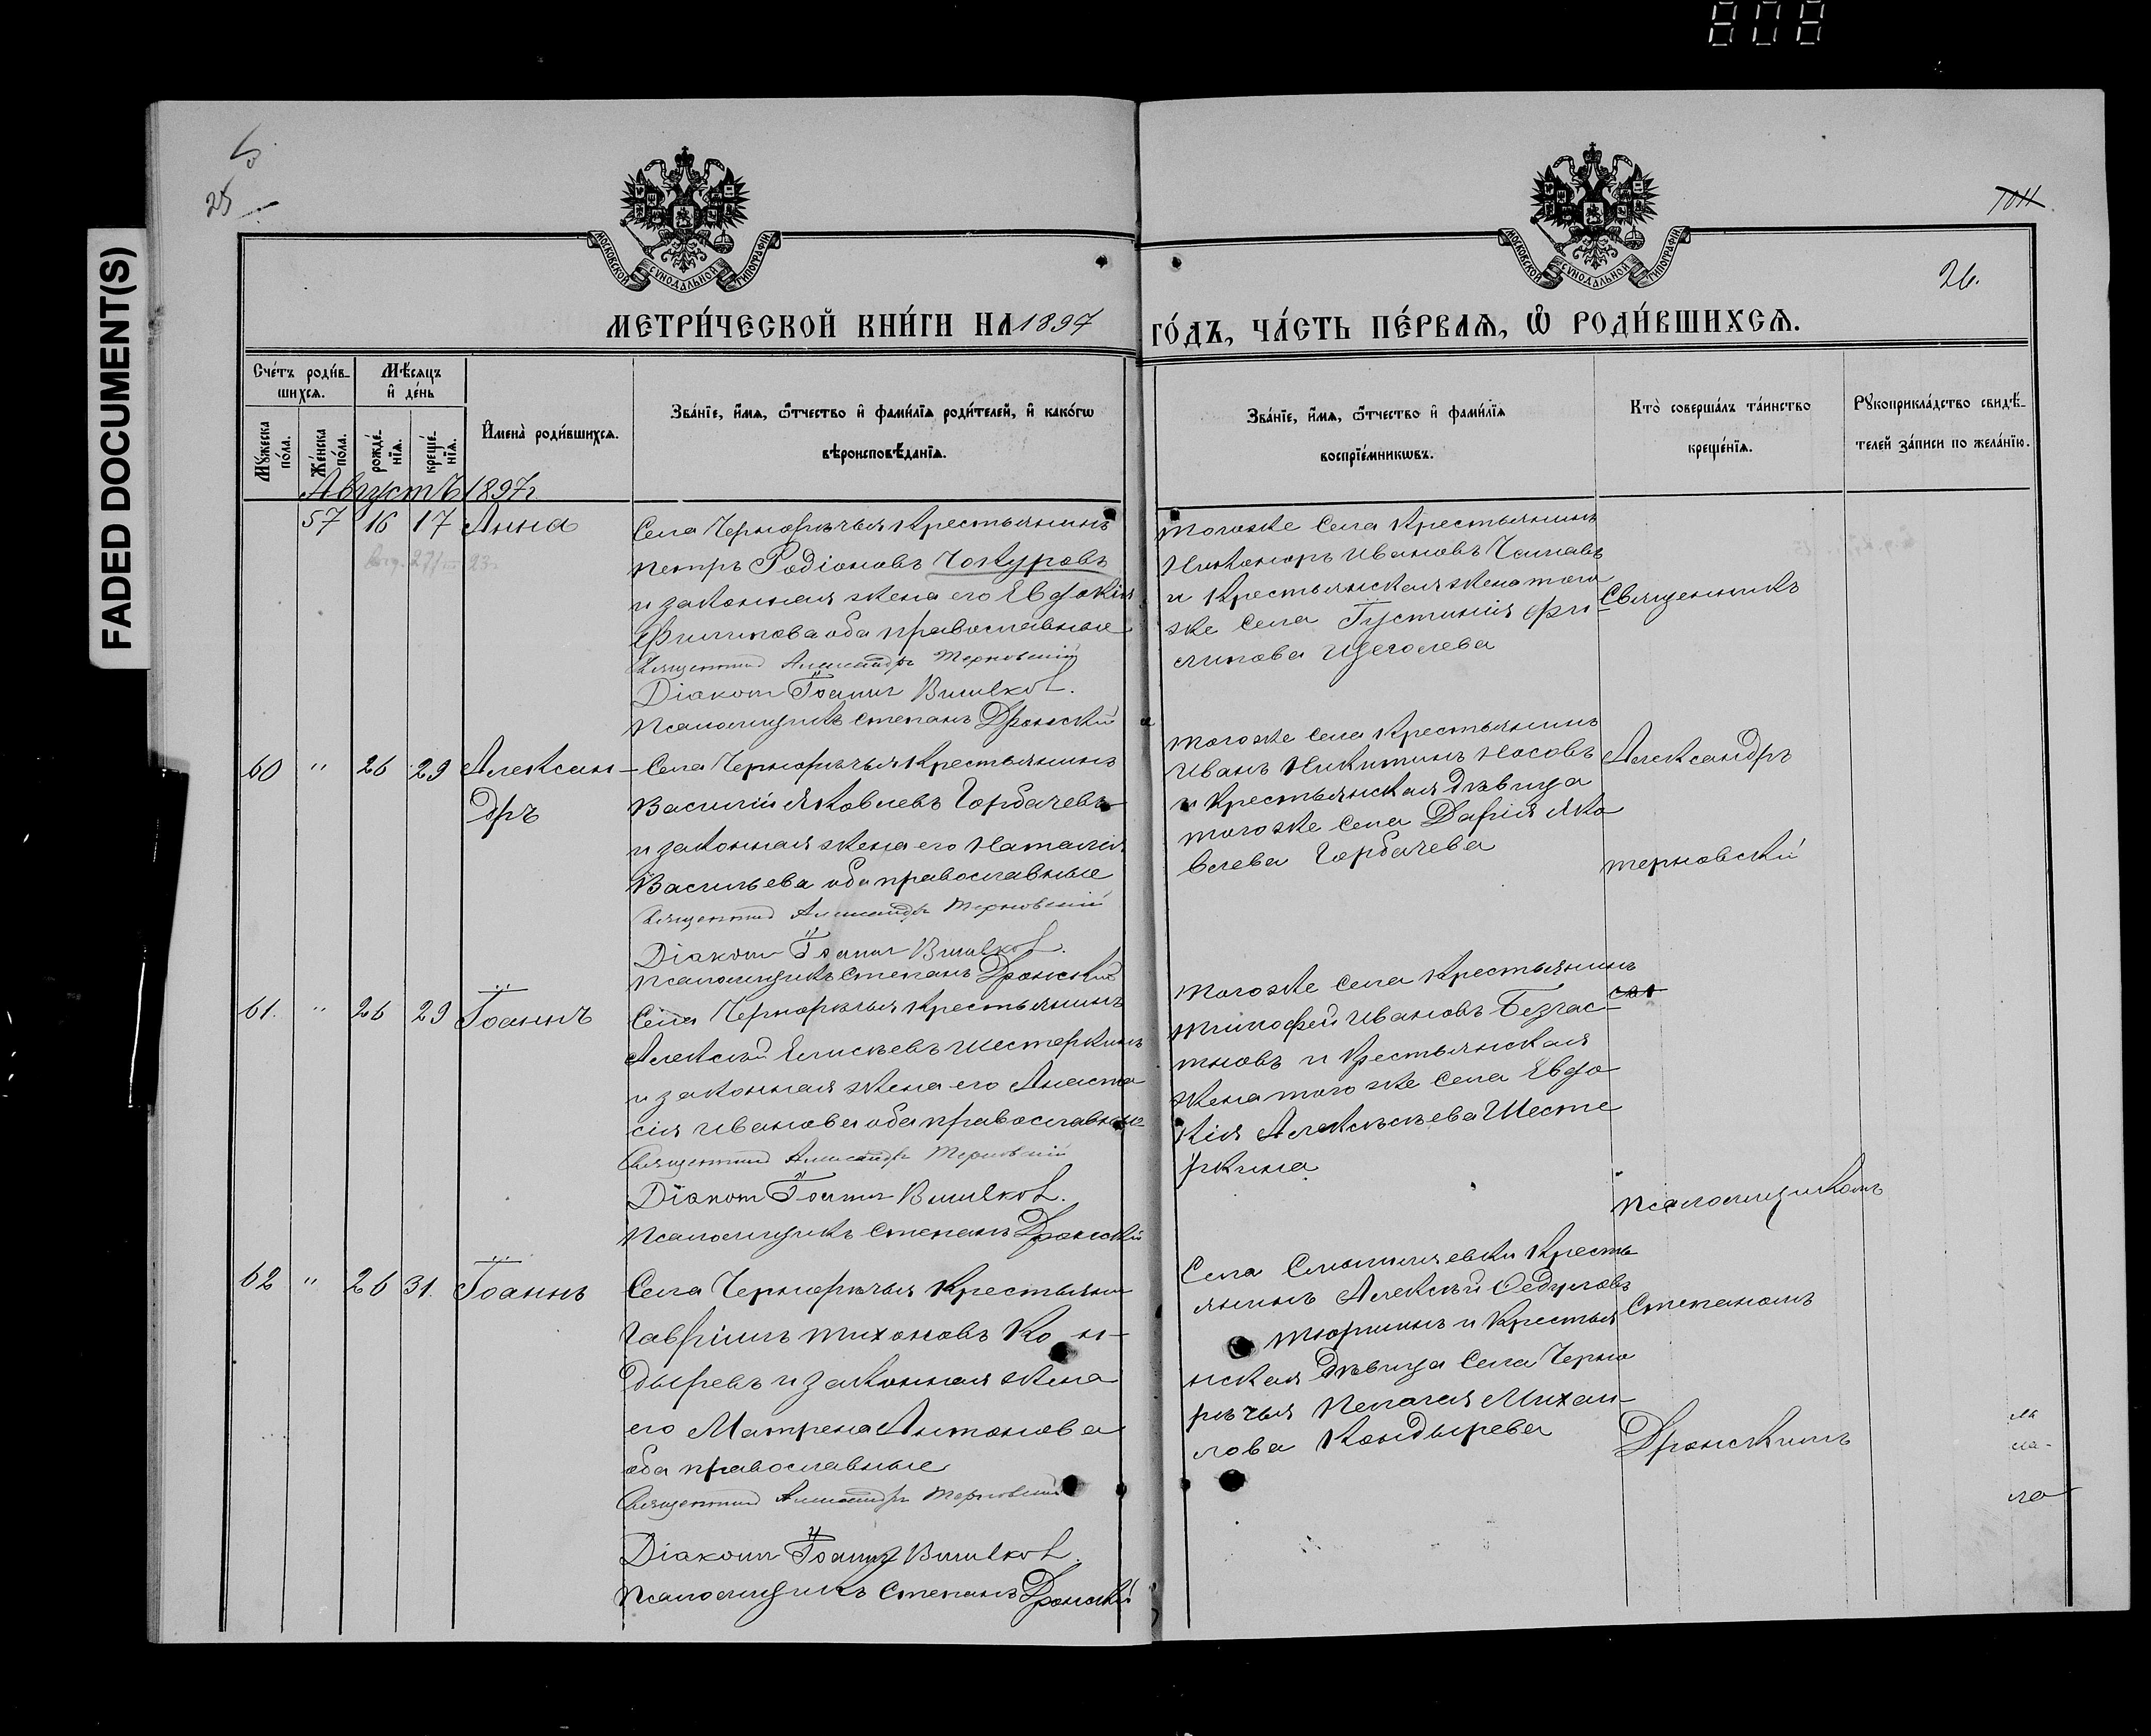 FADED DOCUMENT(S)
25
26.
МОСКОВСКОЙ СѴНОДАЛЬНОЙ ТИПОГРАФІИ
МОСКОВСКОЙ СѴНОДАЛЬНОЙ ТИПОГРАФІИ
МЕТРИ́ЧЕСКОЙ КНИ́ГИ НА 1897
ГО́ДЪ, ЧА́СТЬ ПЕ́РВАѦ, Ѡ РОДИ́ВШИХСѦ.
Сче́тъ роди́в-
шихсѧ.
Мѣ́сѧцъ
и де́нь
Му́жеска
по́ла.
Же́нска
по́ла.
рожде́-
нїѧ.
креще́-
нїѧ.
И҆мена̀ роди́вшихсѧ.
Зва́нїе, и҆́мѧ, ѻ҆́тчество и҆ фами́лїѧ роди́телей, и҆ како́гѡ
вѣроисповѣ́данїѧ.
Зва́нїе, и҆́мѧ, ѻ҆́тчество и҆ фами́лїѧ
воспрїе́мникѡвъ.
Кто̀ соверша́лъ та́инство
креще́нїѧ.
Рꙋкоприкла́дство свидѣ́-
телей за́писи по жела́нїю.
Августъ 1897г
57 16 17 Анна
Села Чернорѣчья Крестьянинъ
Петръ Родіоновъ Чокуровъ
и законная жена его Евдокія
Филипова оба православные
Священник Александръ Терновский
Діаконъ Іоаннъ
Псаломщикъ Степанъ Дронский
тогоже Села Крестьянинъ
Никоноръ Ивановъ
и Крестьянская жена того
же Села Іустинія Фи-
липова Щеголева
Священникъ
60 " 26 29 Алексан-
дръ
Села Чернорѣчья Крестьянинъ
Василій Яковлевъ Горбачевъ
и законная жена его Наталія
Васильева оба православные
Священник Александръ Терновский
Діаконъ Іоаннъ
Псаломщикъ Степанъ Дронский
тогоже Села Крестьянинъ
Иванъ Никитинъ Носовъ
и Крестьянская дѣвица
тогоже Села Дарія Яко
влева Горбачева
Александръ
терновский
61. " 26 29 Іоаннъ
Села Чернорѣчья Крестьянинъ
Алексѣй Елисѣевъ Шестеркинъ
и законная жена его Анаста
сія Иванова оба православные
Священник Александръ Терновский
Діаконъ Іоаннъ
Псаломщикъ Степанъ Дронский
тогоже Села Крестьянинъ
Тимофей Ивановъ Безчас-
тновъ и Крестьянская
жена того же Села Евдо
кія Алексѣева Шесте
ркина
псаломщикомъ
62 " 26 31. Іоаннъ
Села Чернорѣчья Крестьянин
Гавріилъ Тихоновъ Ко н-
дыревъ и законная жена
его Матрена Антонова
оба православные
Священник Александръ Терновский
Діаконъ Іоаннъ
Псаломщикъ Степанъ Дронский
Села Кресть
янинъ Алексѣй Федуловъ
Тюринъ и Крестья
нская дѣвица Села Черно
рѣчья Пелагея Михаи-
лова Кондырева
Степаномъ
Дронскимъ